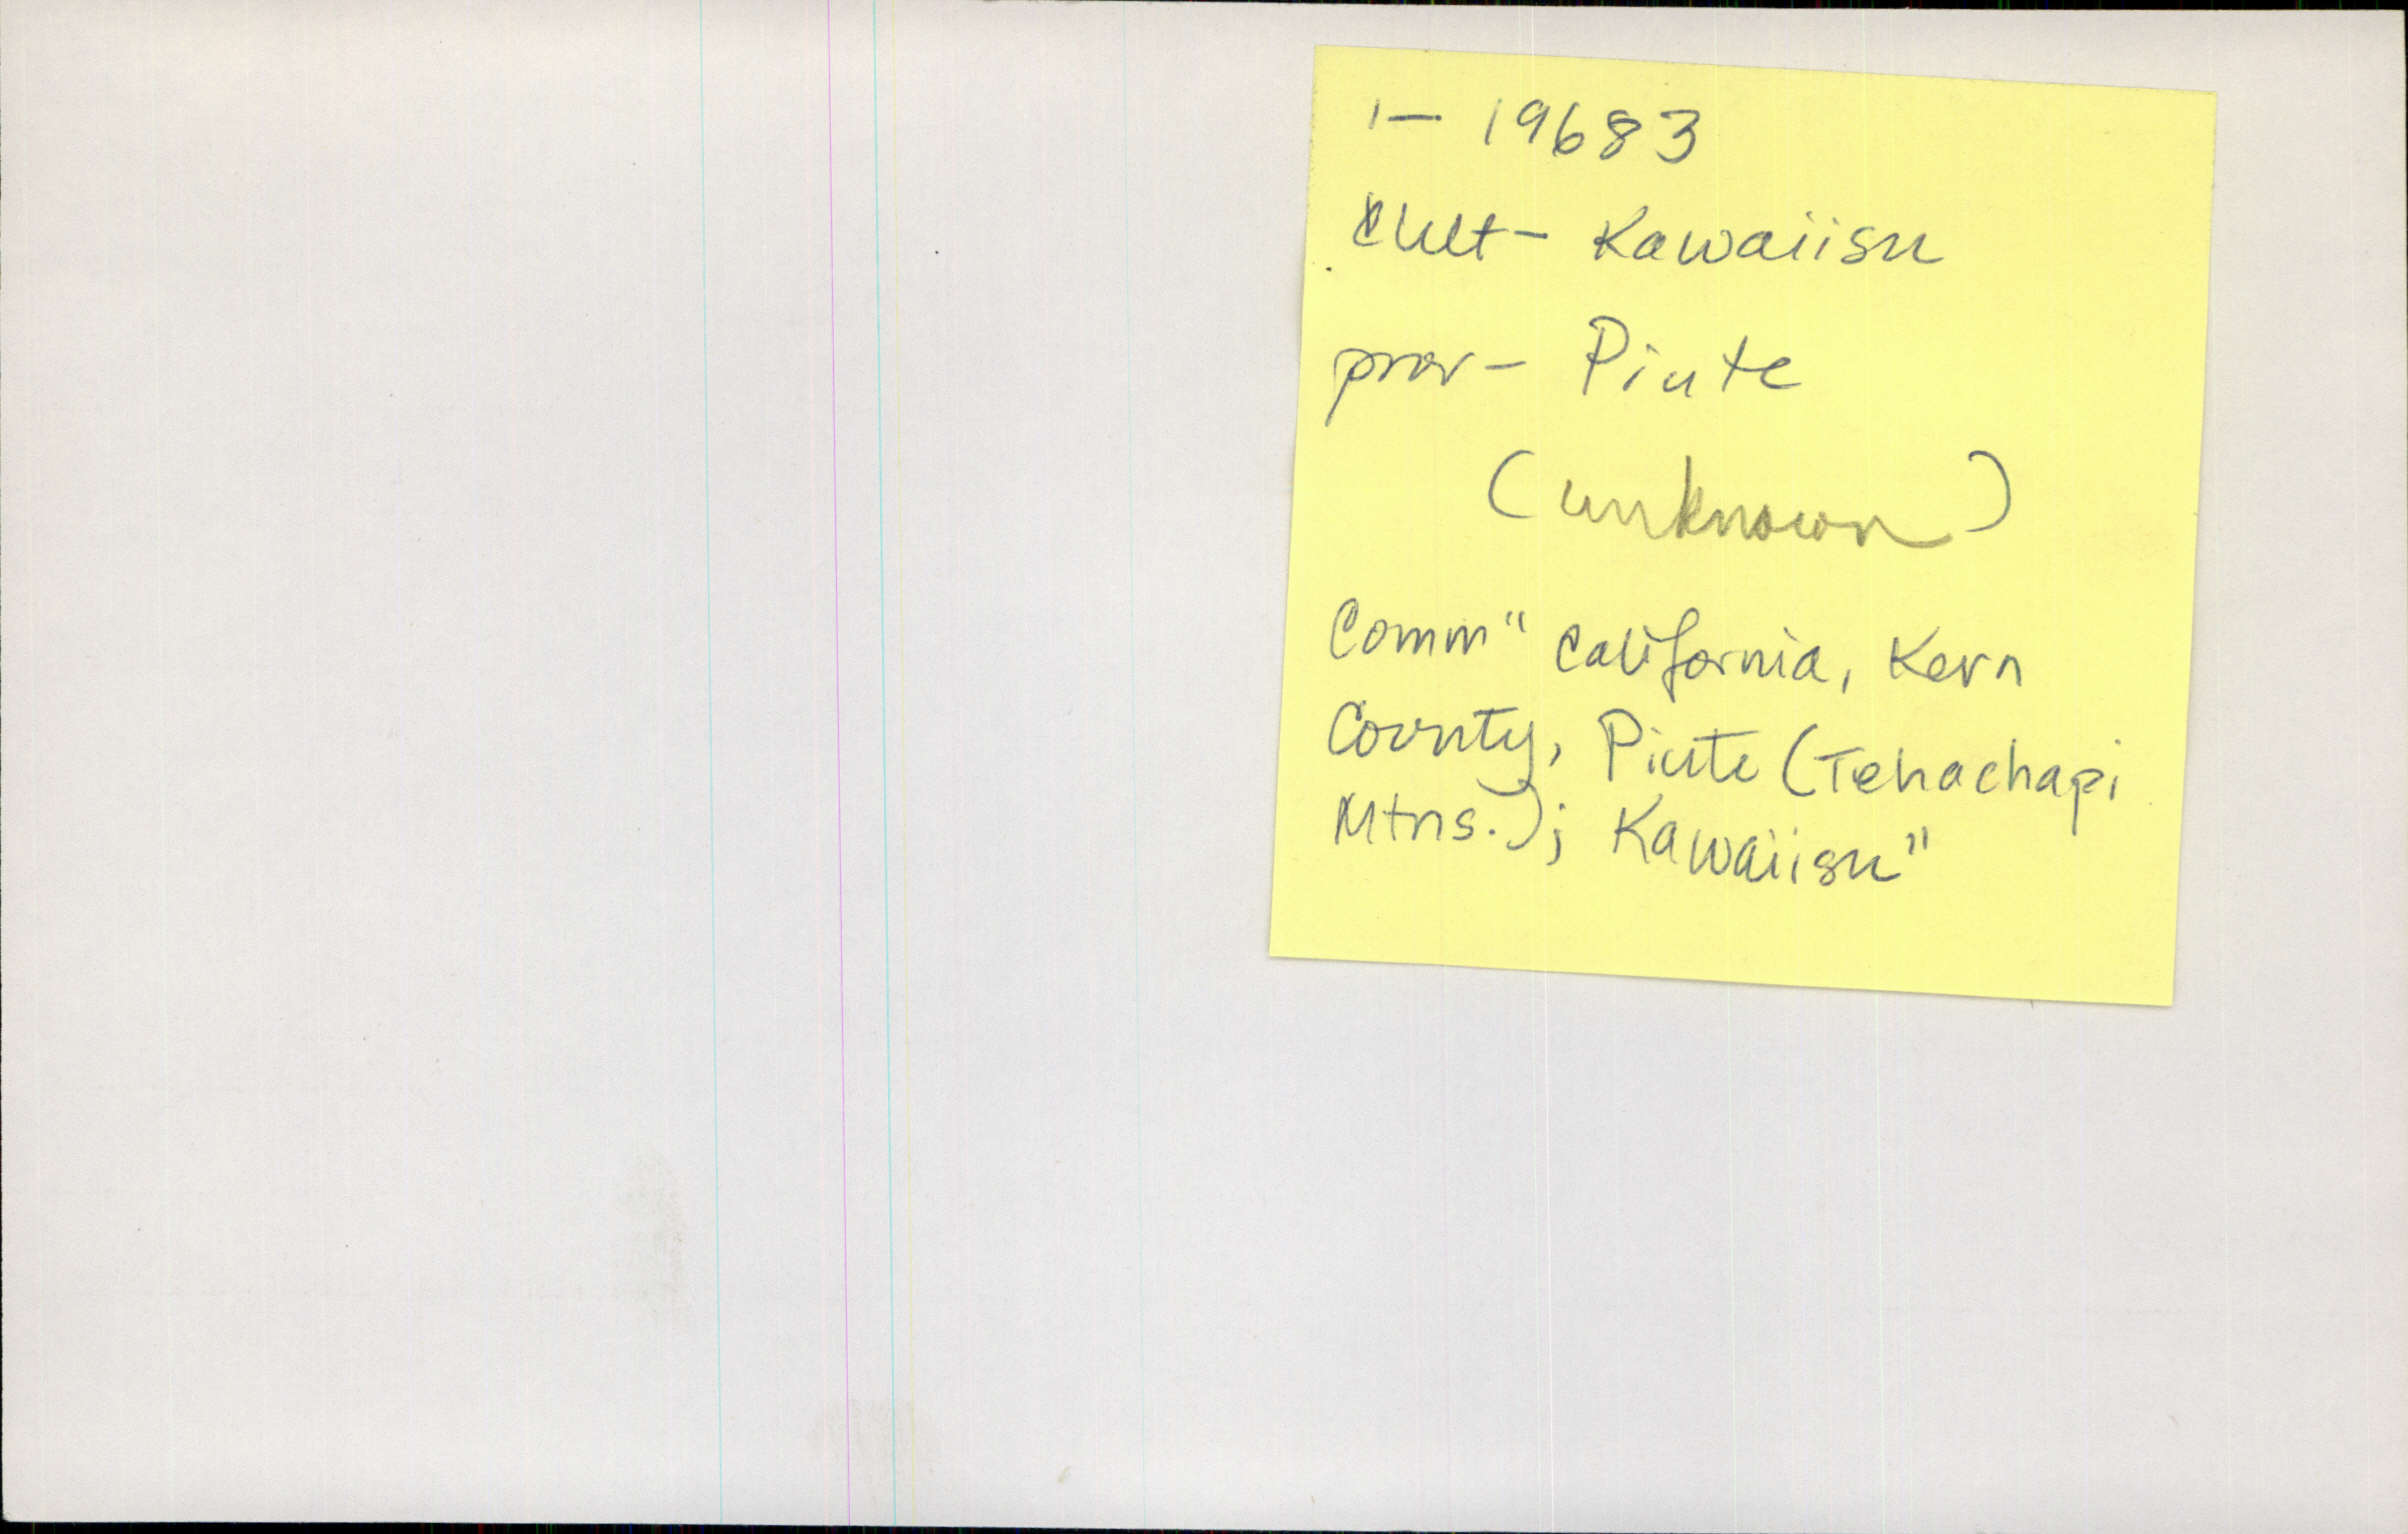 1- 19683
Cult- Kawaiisu
prov- Piute
(unknown)
Comm" California, Kern
County, Piute (Tehachapi
Mtns.); Kawaiisu"